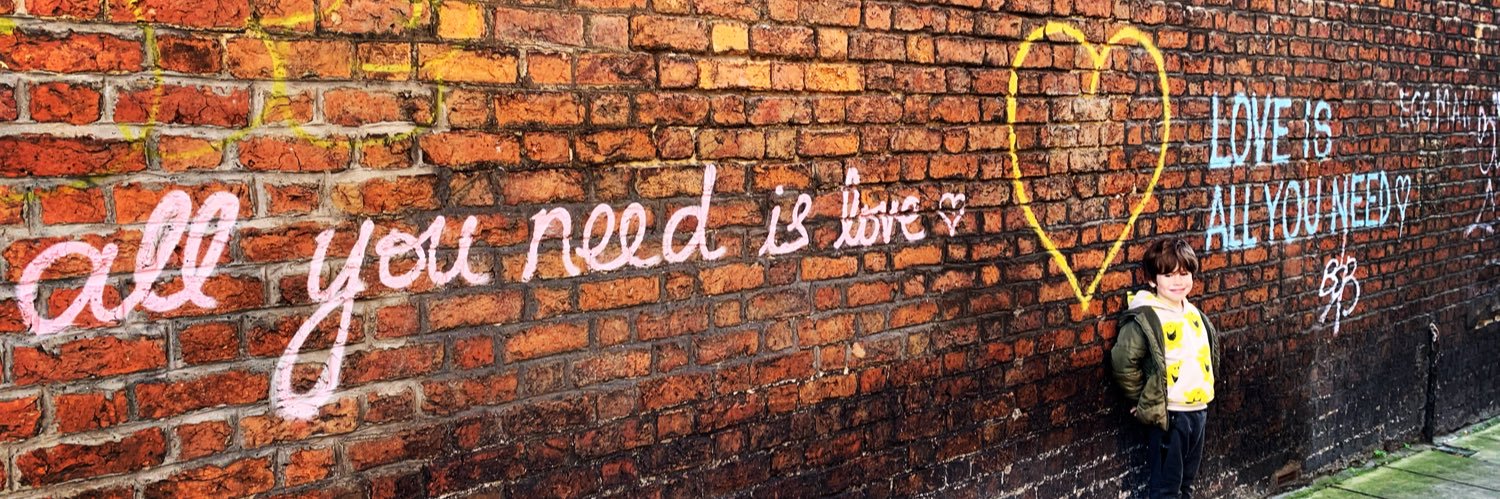 all you need is love
LOVE IS
ALL YOU NEED
EGGMAN